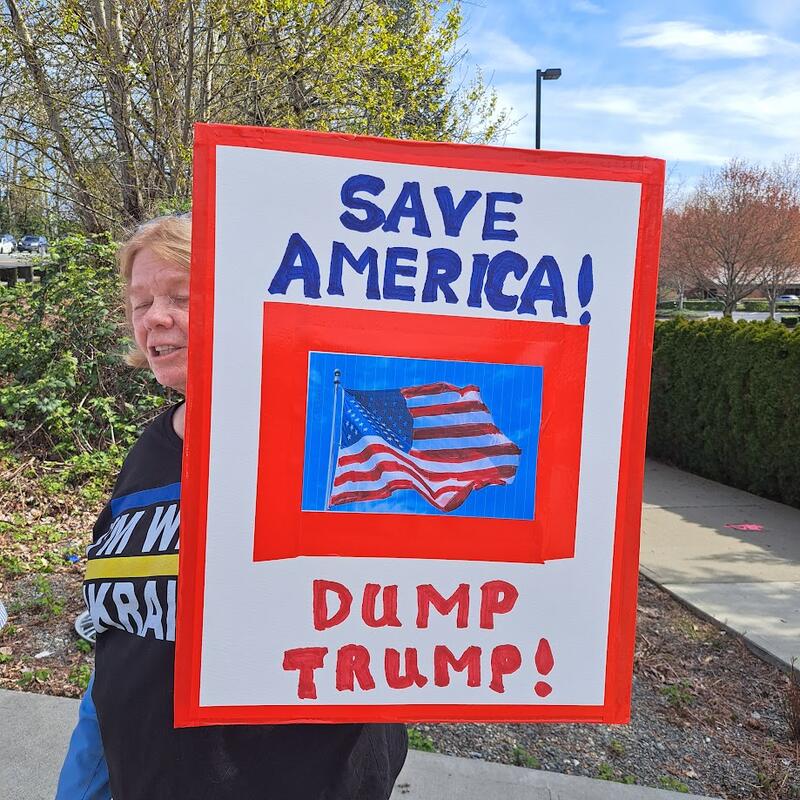 SAVE
AMERICA!
DUMP
TRUMP!
I'M W
KRAI